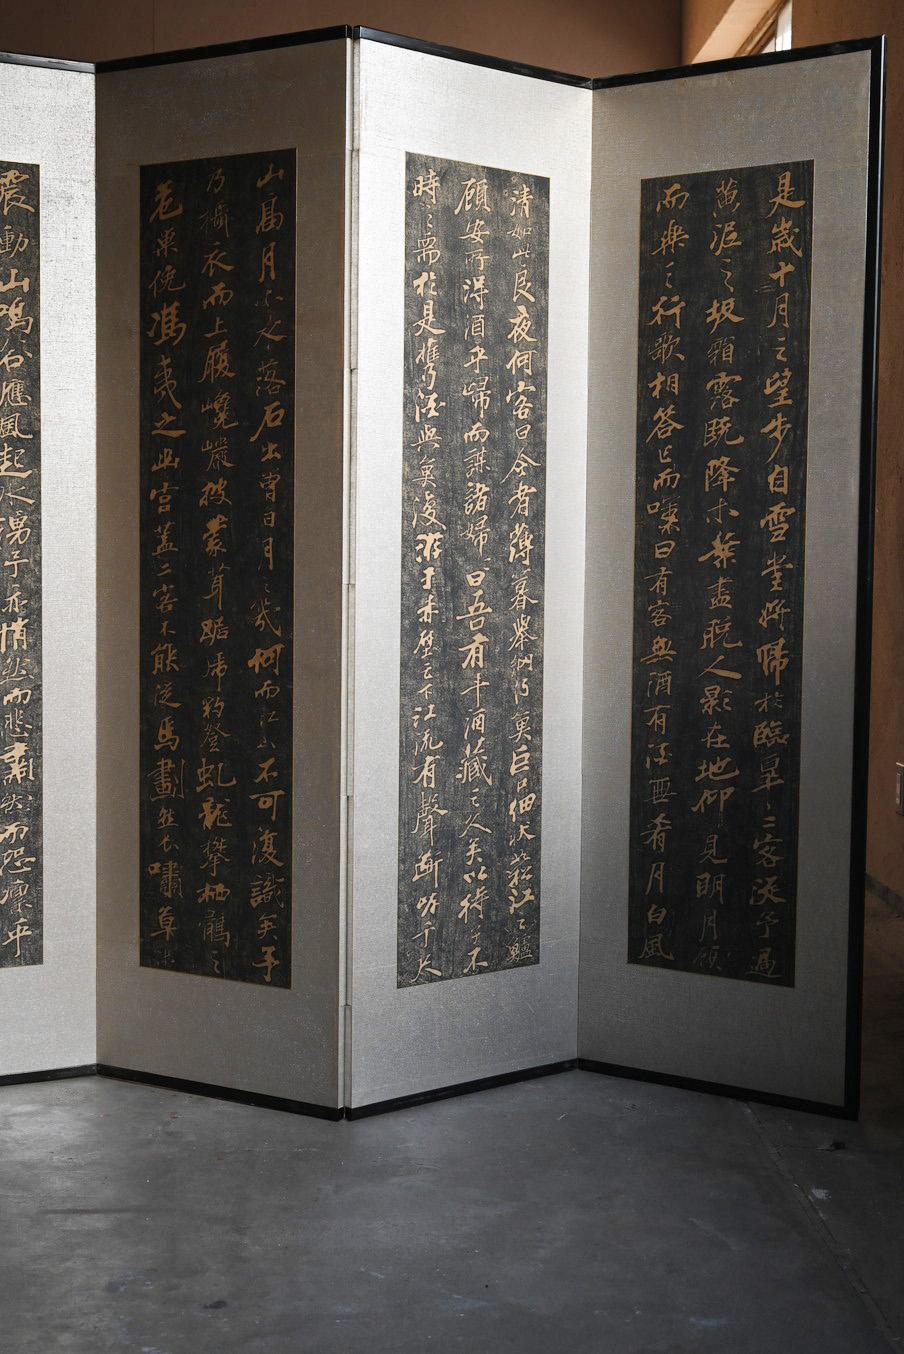 是歲十月之望步自雪堂將歸於臨皋二客從予過
黃泥之坂霜露既降木葉盡脫人影在地仰見明月顧
而樂之行歌相答已而嘆曰有客無酒有酒無肴月白風
清如此良夜何客曰今者薄暮舉網得魚巨口細狀似松江之鱸
顧安所得酒乎歸而謀諸婦曰吾有斗酒藏之久矣以待子不
時之需於是攜酒與魚復游於赤壁之下江流有聲斷岸千尺
山高月小水落石出曾日月之幾何而江山不可復識矣予
乃攝衣而上履巉巖披蒙茸踞虎豹登虬龍攀栖鶻之
危巢俯馮夷之幽宮蓋二客不能從焉劃然長嘯草木
震動山鳴谷應風起水涌予亦悄然而悲肅然而恐凜乎